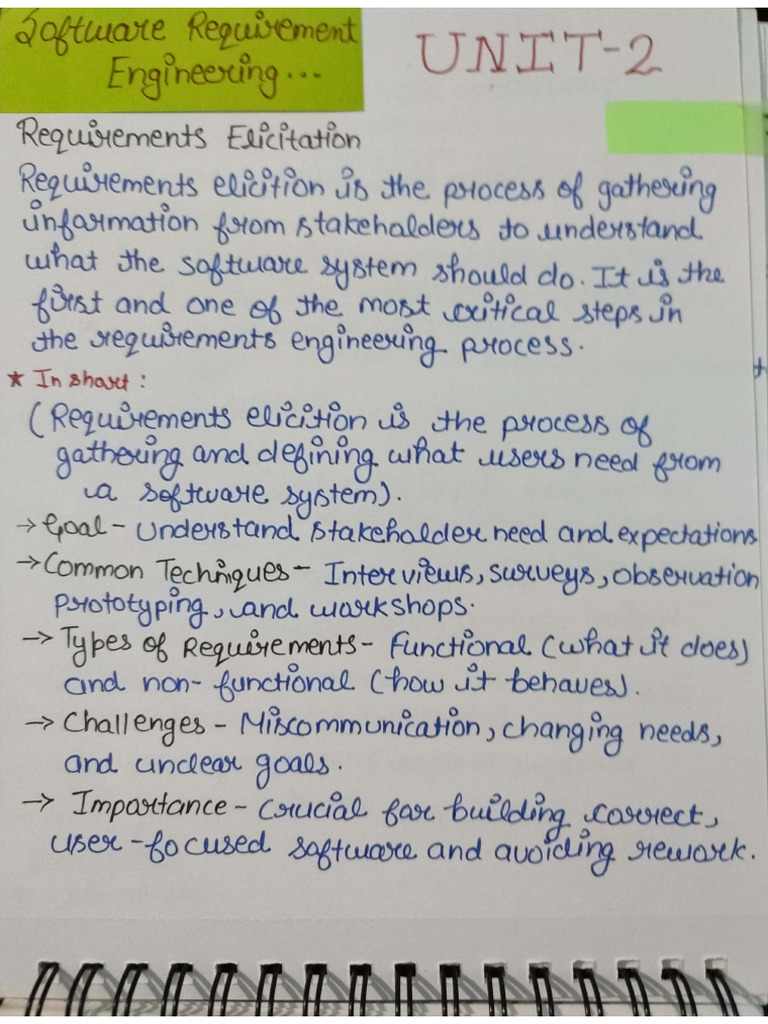 Software Requirement
Engineering...
UNIT-2
Requirements Elicitation
Requirements elicition is the process of gathering
information from stakeholders to understand
what the software system should do. It is the
first and one of the most critical steps in
the requirements engineering process.
* In short:
(Requirements elicition is the process of
gathering and defining what users need from
a software system).
→ Goal - Understand stakeholder need and expectations
→ Common Techniques - Interviews, surveys, observation
prototyping, and workshops.
→ Types of Requirements - Functional (what it does)
and non-functional (how it behaves).
→ Challenges - Miscommunication, changing needs,
and unclear goals.
→ Importance - Crucial for building correct,
user-focused software and avoiding rework.